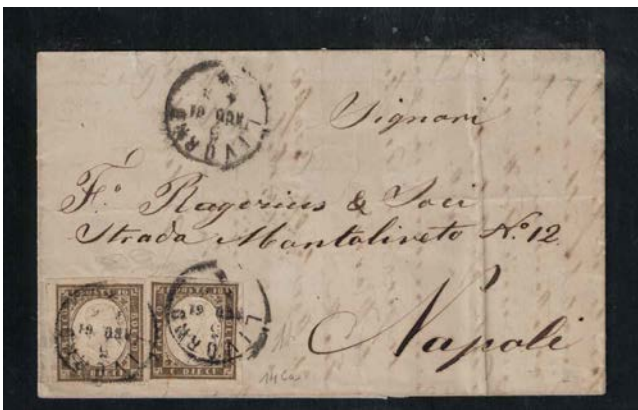 LIVORNO
AGO 61
Signori
F.º Ragozius & Soci
Strada Montoliveto N.º 12
Napoli
LIVORNO
AGO 61
LIVORNO
AGO 61
C. DIECI
14Ca